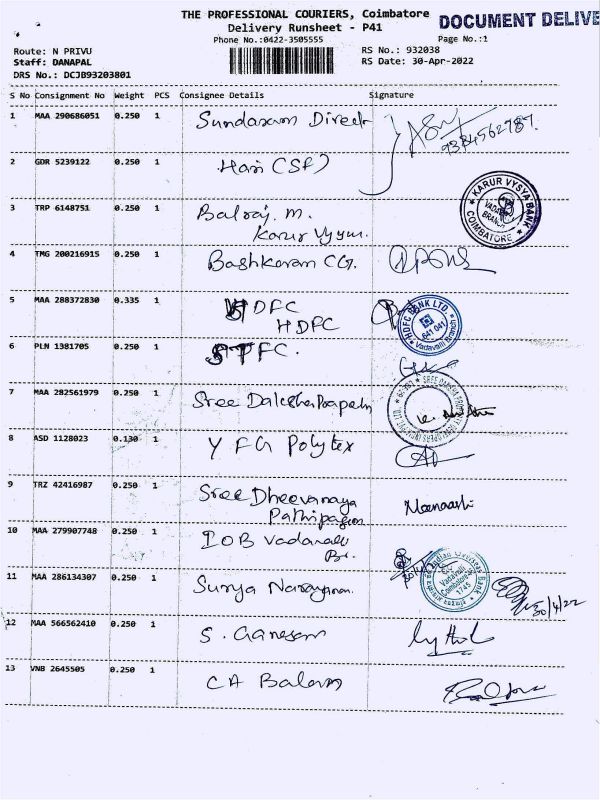 THE PROFESSIONAL COURIERS, Coimbatore
DOCUMENT DELIVE
Delivery Runsheet - P41
Phone No.:0422-3505555
Page No.:1
Route: N PRIVU
RS No.: 932038
Staff: DANAPAL
RS Date: 30-Apr-2022
DRS No.: DCJB93203801
S No Consignment No Weight PCS Consignee Details Signature
1 MAA 290686051 0.250 1 Sundaram Direct
9384562787.
2 GDR 5239122 0.250 1 Hari (SF)
3 TRP 6148751 0.250 1 Balraj. M.
Karur Vyym.
KARUR VYSYA BANK
VADAVALLI
BRANCH
COIMBATORE
4 TMG 200216915 0.250 1 Bashkaran CG.
5 MAA 288372830 0.335 1 HDFC
HDFC
HDFC BANK LTD.
641 041
Vadavalli Branch
6 PLN 1381705 0.250 1 STFC.
7 MAA 282561979 0.250 1 Sree Daksha
SREE DAKSHA PROPERTY DEVELOPERS (INDIA) PVT. LTD.
8 ASD 1128023 0.130 1 YFG Polytex
9 TRZ 42416987 0.250 1 Sree Dheevanaya
Pathipagam
Meenaashi
10 MAA 279907748 0.250 1 IOB Vadavalli
Br.
Indian Overseas Bank
Vadavalli
Coimbatore
1745
11 MAA 286134307 0.250 1 Surya Narayanan.
30/4/22
12 MAA 566562410 0.250 1 S. Ganesan
13 VNB 2645505 0.250 1 CA Balam